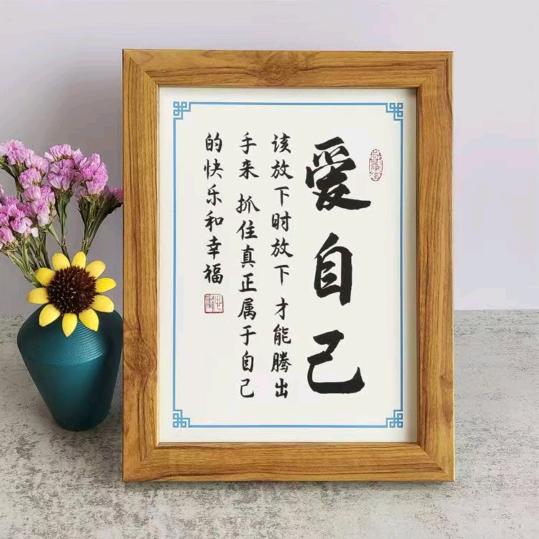 爱自己
该放下时放下 才能腾出
手来 抓住真正属于自己
的快乐和幸福